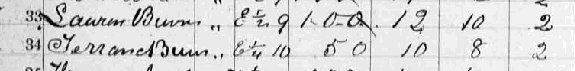 33 Lauren Burns „ E ½ 9 100 12 10 2
34 Terrance Burns „ E ¼ 10 50 10 8 2